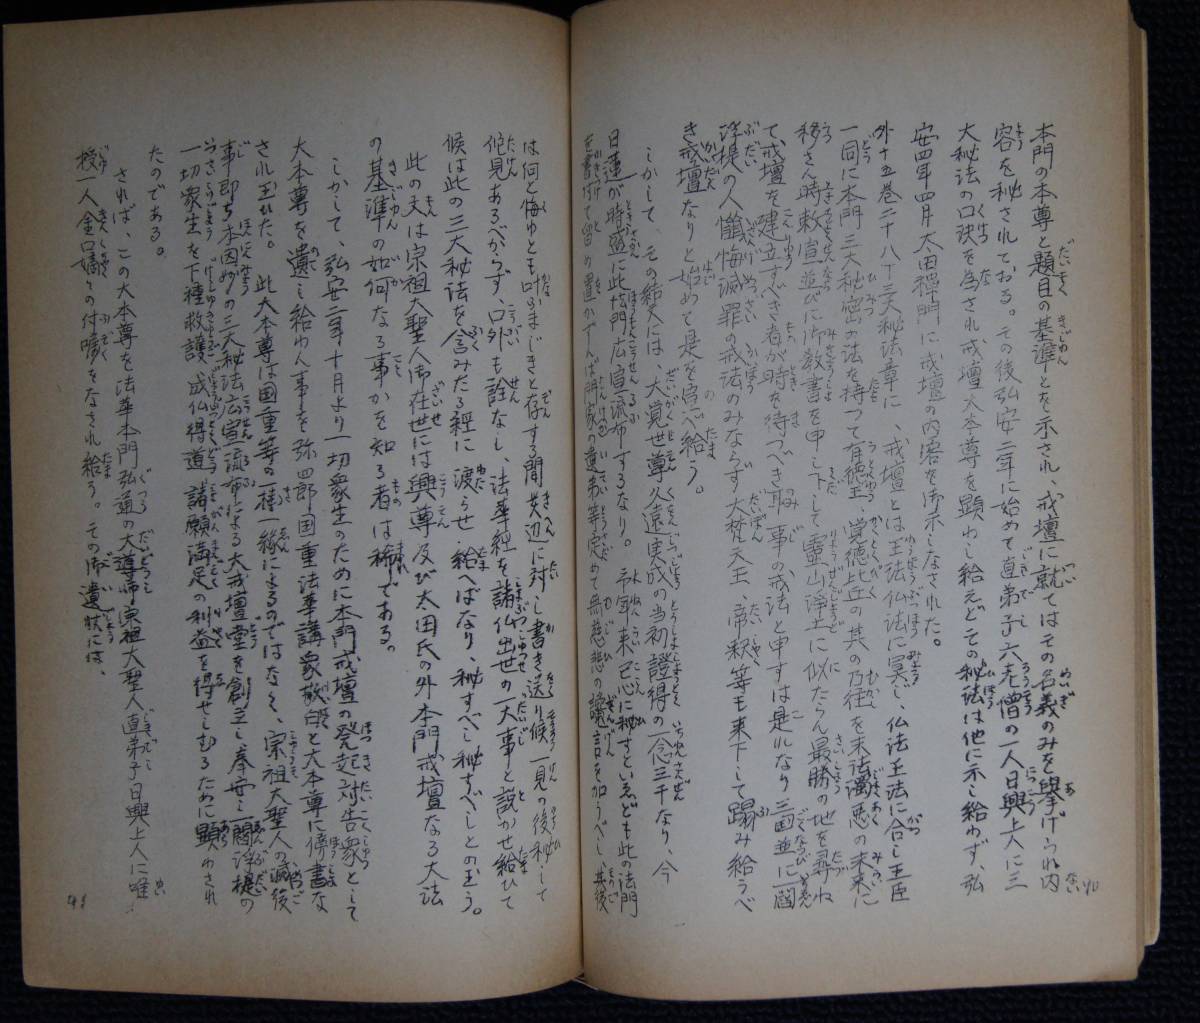 本門の本尊と題目の基準とを示され、戒壇に就てはその名義のみを挙げられ内
容を秘されておる。その後弘安二年に始めて直弟子六老僧の一人日興上人に三
大秘法の口決を為され戒壇大本尊を顕わし給えどその秘法は他に示し給わず、弘
安四年四月太田禅門に戒壇の内容を御示しなされた。
外十五巻二十八丁三大秘法章に、戒壇とは王法仏法に冥じ、仏法王法に合し王臣
一同に本門三大秘密の法を持つて有徳王、覚徳比丘の其の乃往を末法濁悪の未来に
移さん時勅宣並びに御教書を申し下して霊山浄土に似たらん最勝の地を尋ね
て戒壇を建立すべき者か時を待つべき耳、事の戒法と申すは是れなり三国並に一閻
浮提の人懺悔滅罪の戒法のみならず大梵天王、帝釈等も来下して蹋み給うべ
き戒壇なりと始めて是を宣べ給う。
しかして、その結文には、大覚世尊久遠実成の当初證得の一念三千なり、今
日蓮が時盛に此法門広宣流布するなり。予年来己心に秘すといえども此の法門
を書付て留め置かずんば門家の遺弟等定めて無慈悲の讒言を加うべし、其後
は何と悔ゆとも叶うまじきと存する間貴辺に対し書き送り候、一見の後秘して
他見あるべからず、口外も詮なし、法華経を諸仏出世の一大事と説かせ給ひて
候は此の三大秘法を含みたる経に渡らせ給へばなり、秘すべし秘すべしとの玉う。
此の文は宗祖大聖人御在世には興尊及び太田氏の外本門戒壇なる大法
の基準の如何なる事かを知る者は稀である。
しかして、弘安二年十月より一切衆生のために本門戒壇の発起対告衆として
大本尊を遺し給わん事を弥四郎国重法華講衆敬白と大本尊に傍書な
され玉われた。此大本尊は国重等の一機一縁によるのではなく、宗祖大聖人の滅後
事即ち本因妙の三大秘法広宣流布による大戒壇堂を創立し奉安し一閻浮提の
一切衆生を下種救護、成仏得道、諸願満足の利益を得せしむるために顕わされ
たのである。
されば、この大本尊を法華本門弘通の大導師宗祖大聖人直弟子日興上人に唯
授一人金口嫡々の付嘱をなされ給う。その御遺状には、
91